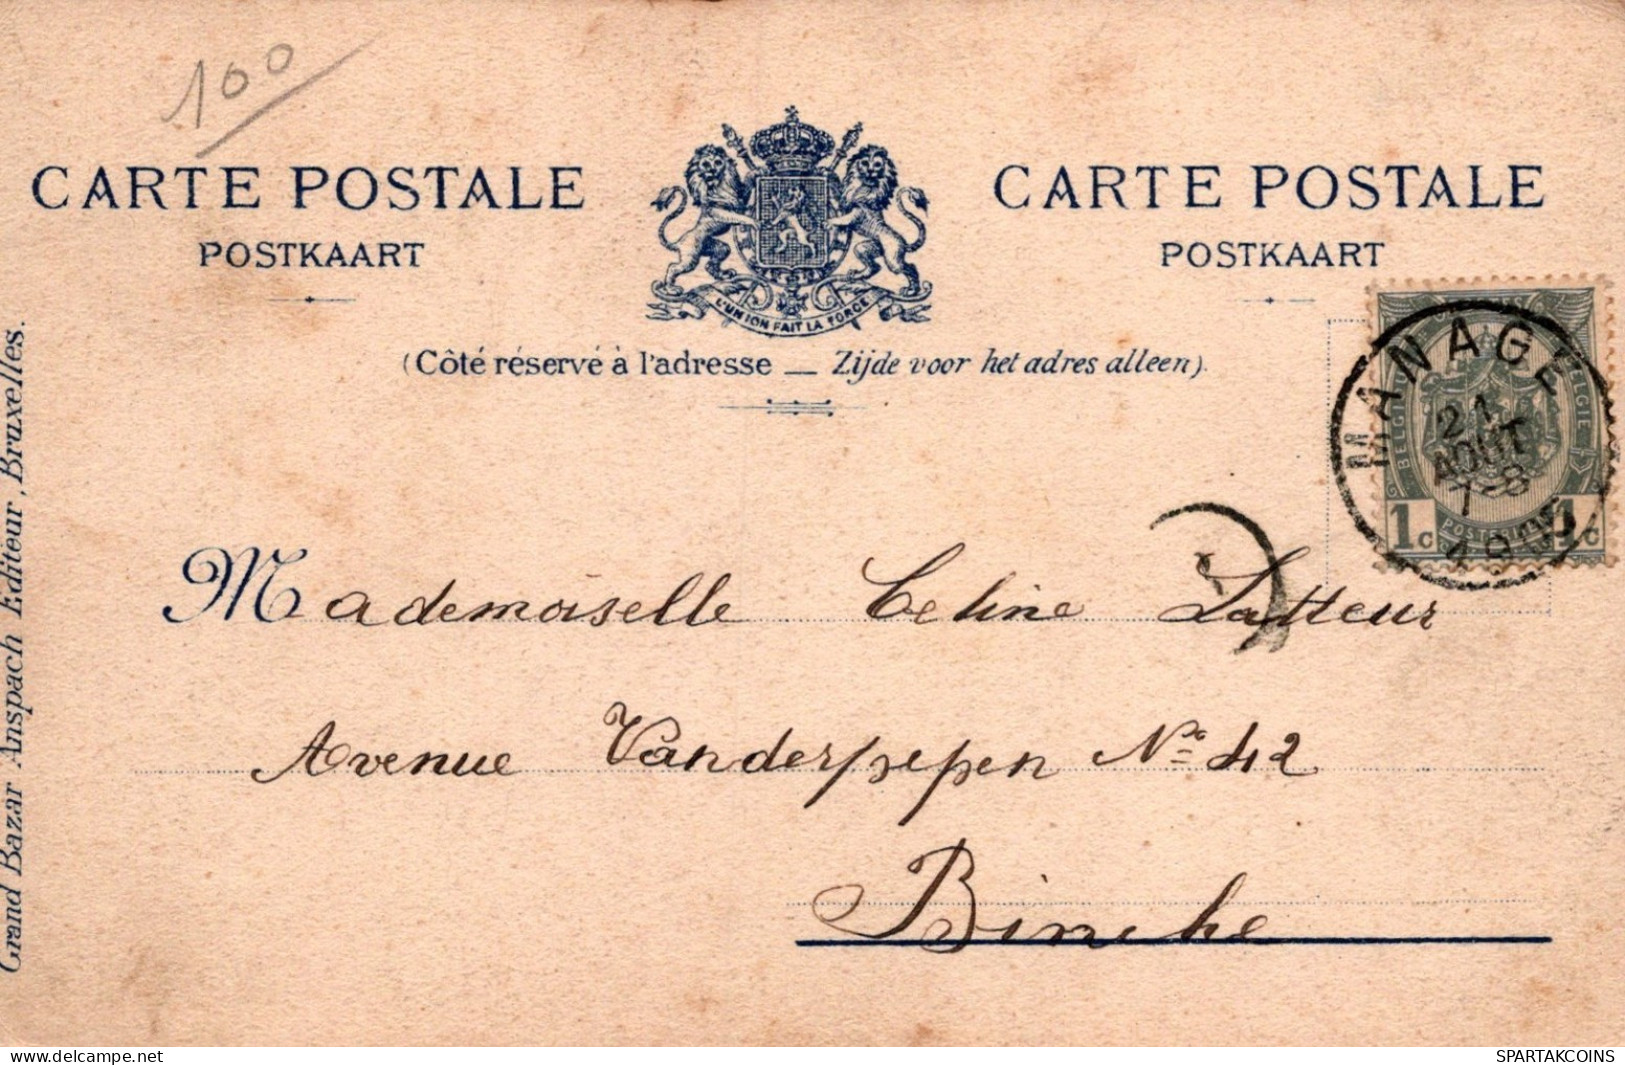 100
CARTE POSTALE
POSTKAART
CARTE POSTALE
POSTKAART
L'UNION FAIT LA FORCE
(Côté réservé à l'adresse — Zijde voor het adres alleen).
MANAGE
21
AOUT
7-8
BELGIQUE
BELGIE
1c
1c
Mademoiselle Celine Latteur
Avenue Vanderpepen No 42
Binche
Grand Bazar Anspach Editeur, Bruxelles.
posted on www.delcampe.net
SPARTAKCOINS